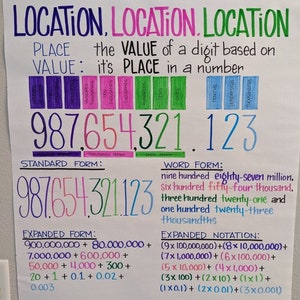 LOCATION, LOCATION, LOCATION
PLACE VALUE: the VALUE of a digit based on
it's PLACE in a number
987,654,321.123
STANDARD FORM:
987,654,321.123
WORD FORM:
nine hundred eighty-seven million,
six hundred fifty-four thousand,
three hundred twenty-one and
one hundred twenty-three
thousandths
EXPANDED FORM:
900,000,000 + 80,000,000 +
7,000,000 + 600,000 +
50,000 + 4,000 + 300 +
20 + 1 + 0.1 + 0.02 +
0.003
EXPANDED NOTATION:
(9x100,000,000)+(8x10,000,000)
+(7x1,000,000)+(6x100,000)+
(5x10,000)+(4x1,000)+
(3x100)+(2x10)+(1x1)+
(1x0.1)+(2x0.01)+(3x0.001)